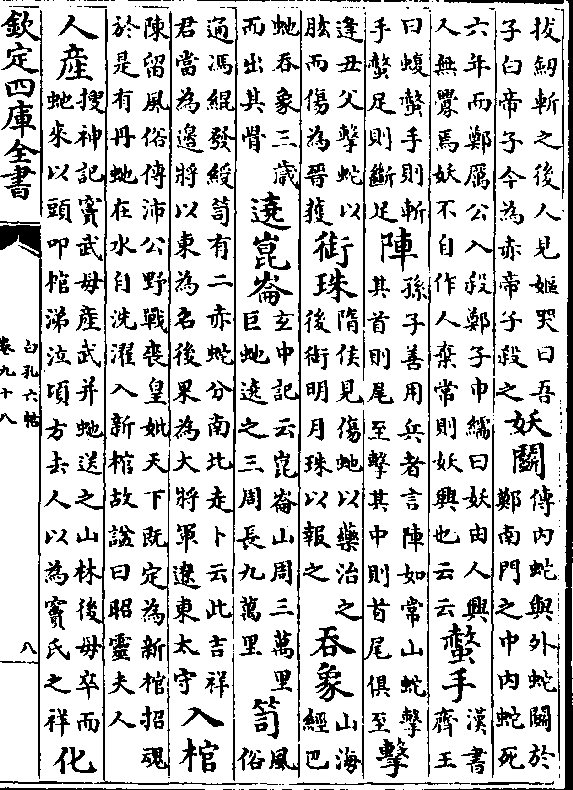 拔劒斬之後人見嫗哭曰吾子白帝子今為赤帝子殺之妖鬭傳內蛇與外蛇鬭於鄭南門之中內蛇死
六年而鄭厲公入殺鄭子申繻曰妖由人興人無釁焉妖不自作人棄常則妖興也云云螫手漢書齊王
曰蝮螫手則斬手螫足則斷足陣孫子善用兵者言陣如常山蛇擊其首則尾至擊其中則首尾俱至擊
逢丑父擊蛇以肱而傷為晉獲銜珠隋侯見傷虵以藥治之後銜明月珠以報之吞象山海經巴
虵吞象三歳而出其骨遶崑崙玄中記云崑崙山周三萬里巨虵遶之三周長九萬里笥風俗
通馮緄發綬笥有二赤蛇分南北走卜云此吉祥君當為邊將以東為名後果為大將軍遼東太守入棺
陳留風俗傳沛公野戰喪皇妣天下既定為新棺招魂於是有丹虵在水自洗濯入新棺故諡曰昭靈夫人
人產搜神記竇武母產武并虵送之山林後母卒而虵來以頭叩棺涕泣頃方去人以為竇氏之祥化
欽定四庫全書
白孔六帖
卷九十八
八